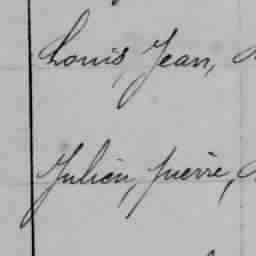 Louis, Jean,
Julien, pierre,